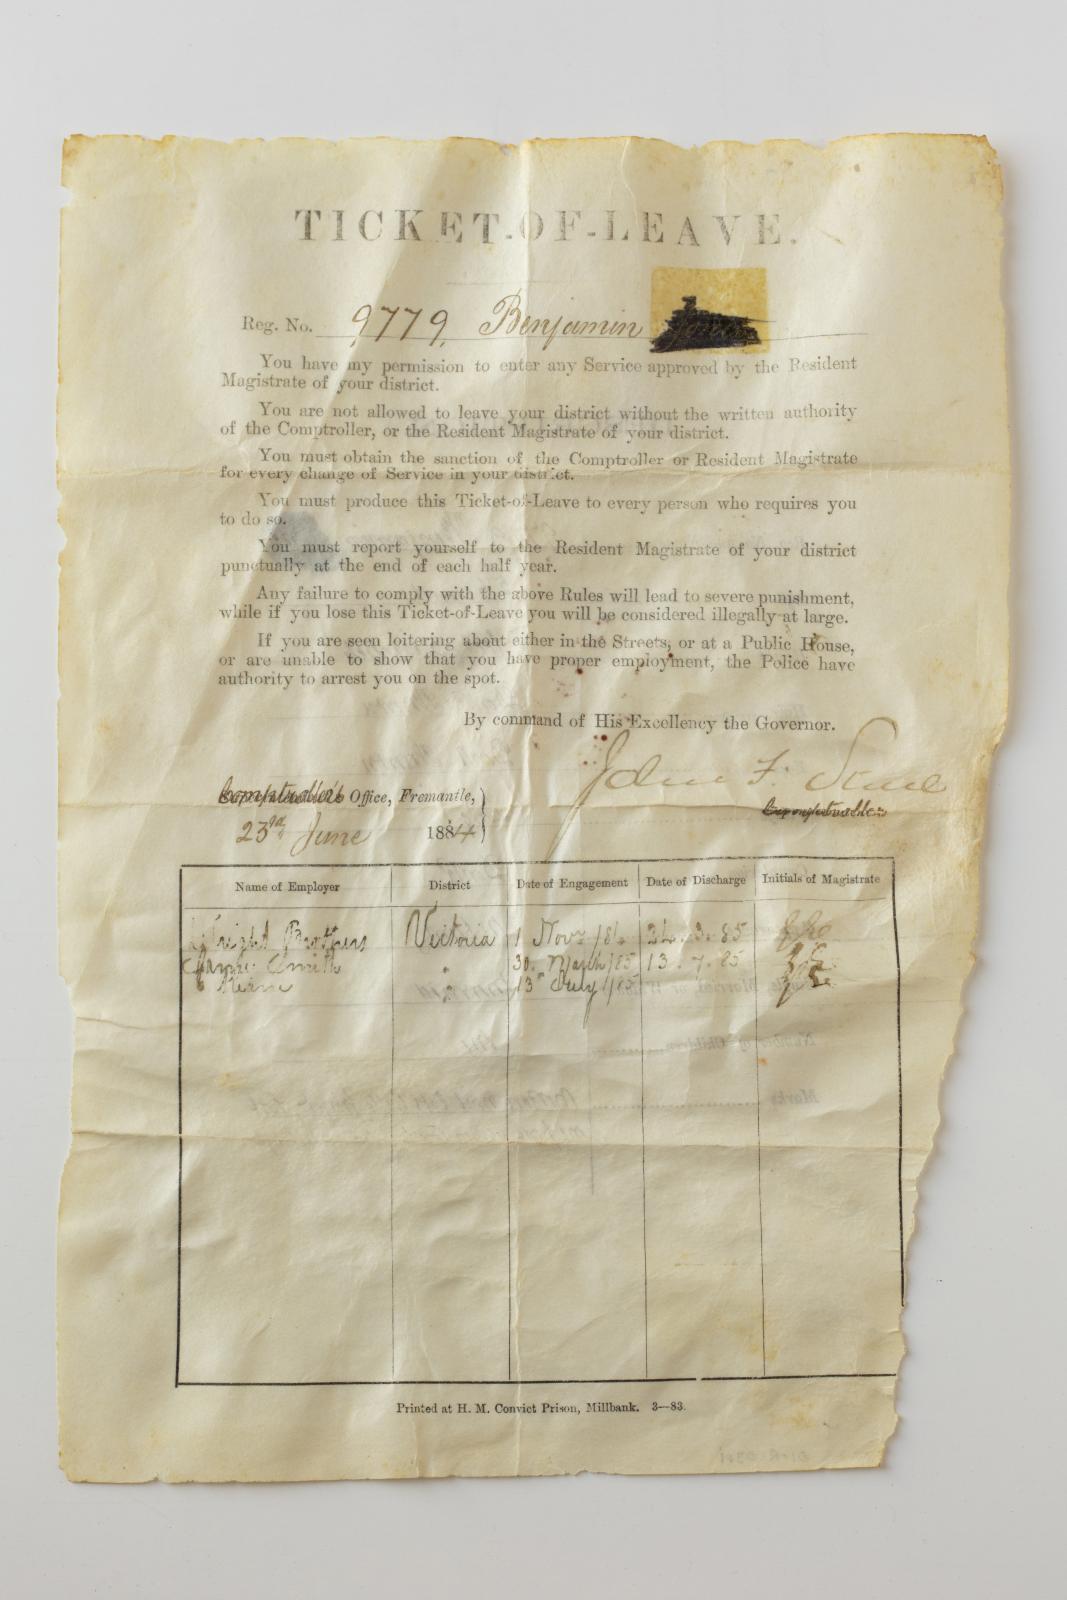 TICKET-OF-LEAVE.
Reg. No. 9779, Benjamin
You have my permission to enter any Service approved by the Resident
Magistrate of your district.
You are not allowed to leave your district without the written authority
of the Comptroller, or the Resident Magistrate of your district.
You must obtain the sanction of the Comptroller or Resident Magistrate
for every change of Service in your district.
You must produce this Ticket-of-Leave to every person who requires you
to do so.
You must report yourself to the Resident Magistrate of your district
punctually at the end of each half year.
Any failure to comply with the above Rules will lead to severe punishment,
while if you lose this Ticket-of-Leave you will be considered illegally at large.
If you are seen loitering about either in the Streets, or at a Public House,
or are unable to show that you have proper employment, the Police have
authority to arrest you on the spot.
By command of His Excellency the Governor.
John F. Stone
Office, Fremantle,
23rd June 1884
Name of Employer District Date of Engagement Date of Discharge Initials of Magistrate
Wright Brothers Victoria 1 Novr /84 24.3.85
Smith " 30. March/85 13.7.85
" 13th July /85
Number of Children
Marks
Printed at H. M. Convict Prison, Millbank. 3—83.